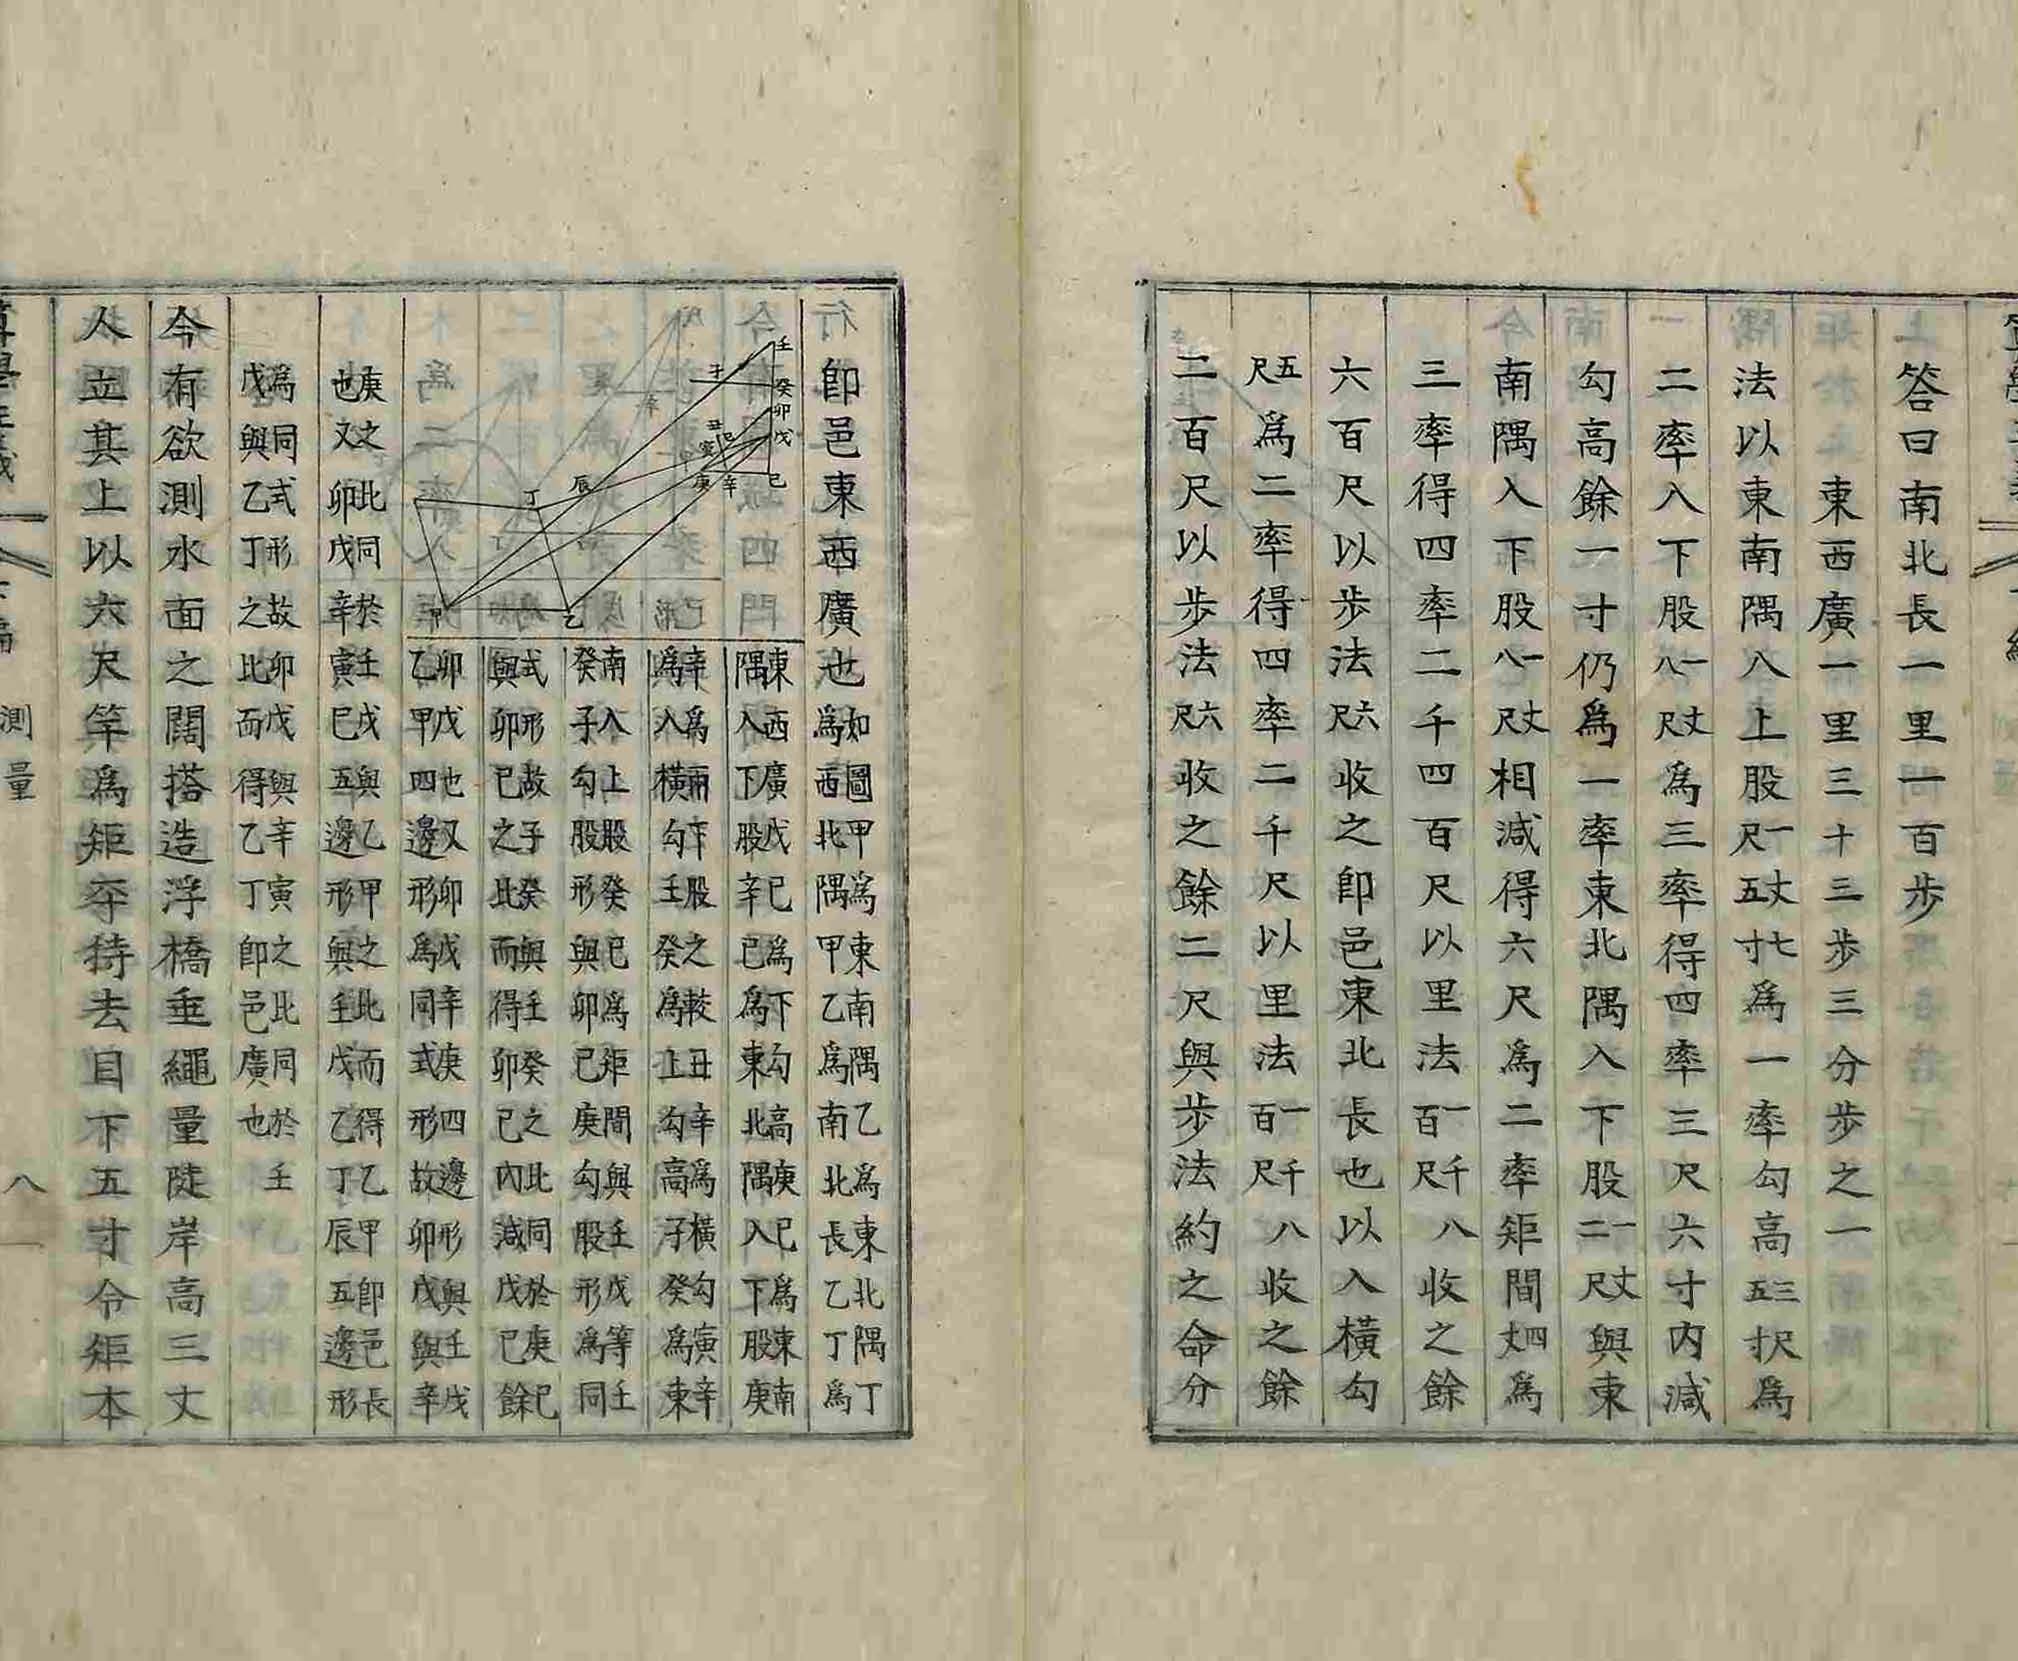 答曰南北長一里一百步
東西廣一里三十三步三分步之一
法以東南隅入上股一丈七尺五寸為一率勾高三尺五寸為
二率入下股一丈八尺為三率得四率三尺六寸内減
勾高餘一寸仍為一率東北隅入下股一丈二尺與東
南隅入下股一丈八尺相減得六尺為二率矩間四丈為
三率得四率二千四百尺以里法一千八百尺收之餘
六百尺以步法六尺收之卽邑東北長也以入橫勾
五尺為二率得四率二千尺以里法一千八百尺收之餘
二百尺以步法六尺收之餘二尺與步法約之命分
卽邑東西廣也
如圖甲為東南隅乙為東北隅丁為
為西北隅甲乙為南北長乙丁為
東西廣戊已為下勾高庚已為東南
隅入下股辛已為東北隅入下股庚
辛為兩下股之較丑辛為橫勾寅辛
為入橫勾壬癸為上勾高子癸為東
南入上股癸已為矩間與壬戊等壬
癸子勾股形與卯已庚勾股形為同
式形故子癸與壬癸之比同於庚已
與卯已之比而得卯已內減戊已餘
卯戊也又卯戊辛庚四邊形與壬戊
乙甲四邊形為同式形故卯戊與辛
庚之比同於壬戊與乙甲之比而得乙甲卽邑長
也又卯戊辛寅巳五邊形與壬戊乙丁辰五邊形
為同式形故卯戊與辛寅之比同於壬
戊與乙丁之比而得乙丁卽邑廣也
今有欲測水面之闊搭造浮橋垂繩量陡岸高三丈
人立其上以六尺竿為矩待去目下五寸令矩本
測量
八
壬
癸
子
卯
戊
丑
巳
寅
庚
辛
已
辰
丁
甲
乙